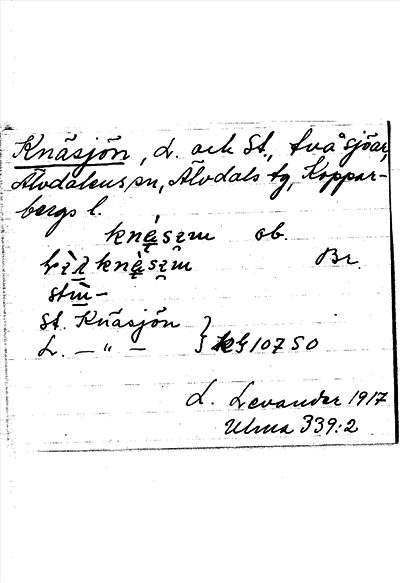 Knäsjön, L. och St., två sjöar,
Älvdalens sn, Älvdals tg, Koppar-
bergs l.
knę̀szm ob.
knę̀szm Br.
stm̀-
St. Knäsjön
L. — " — } kbl 10750
L. Levander 1917
Ulma 339:2